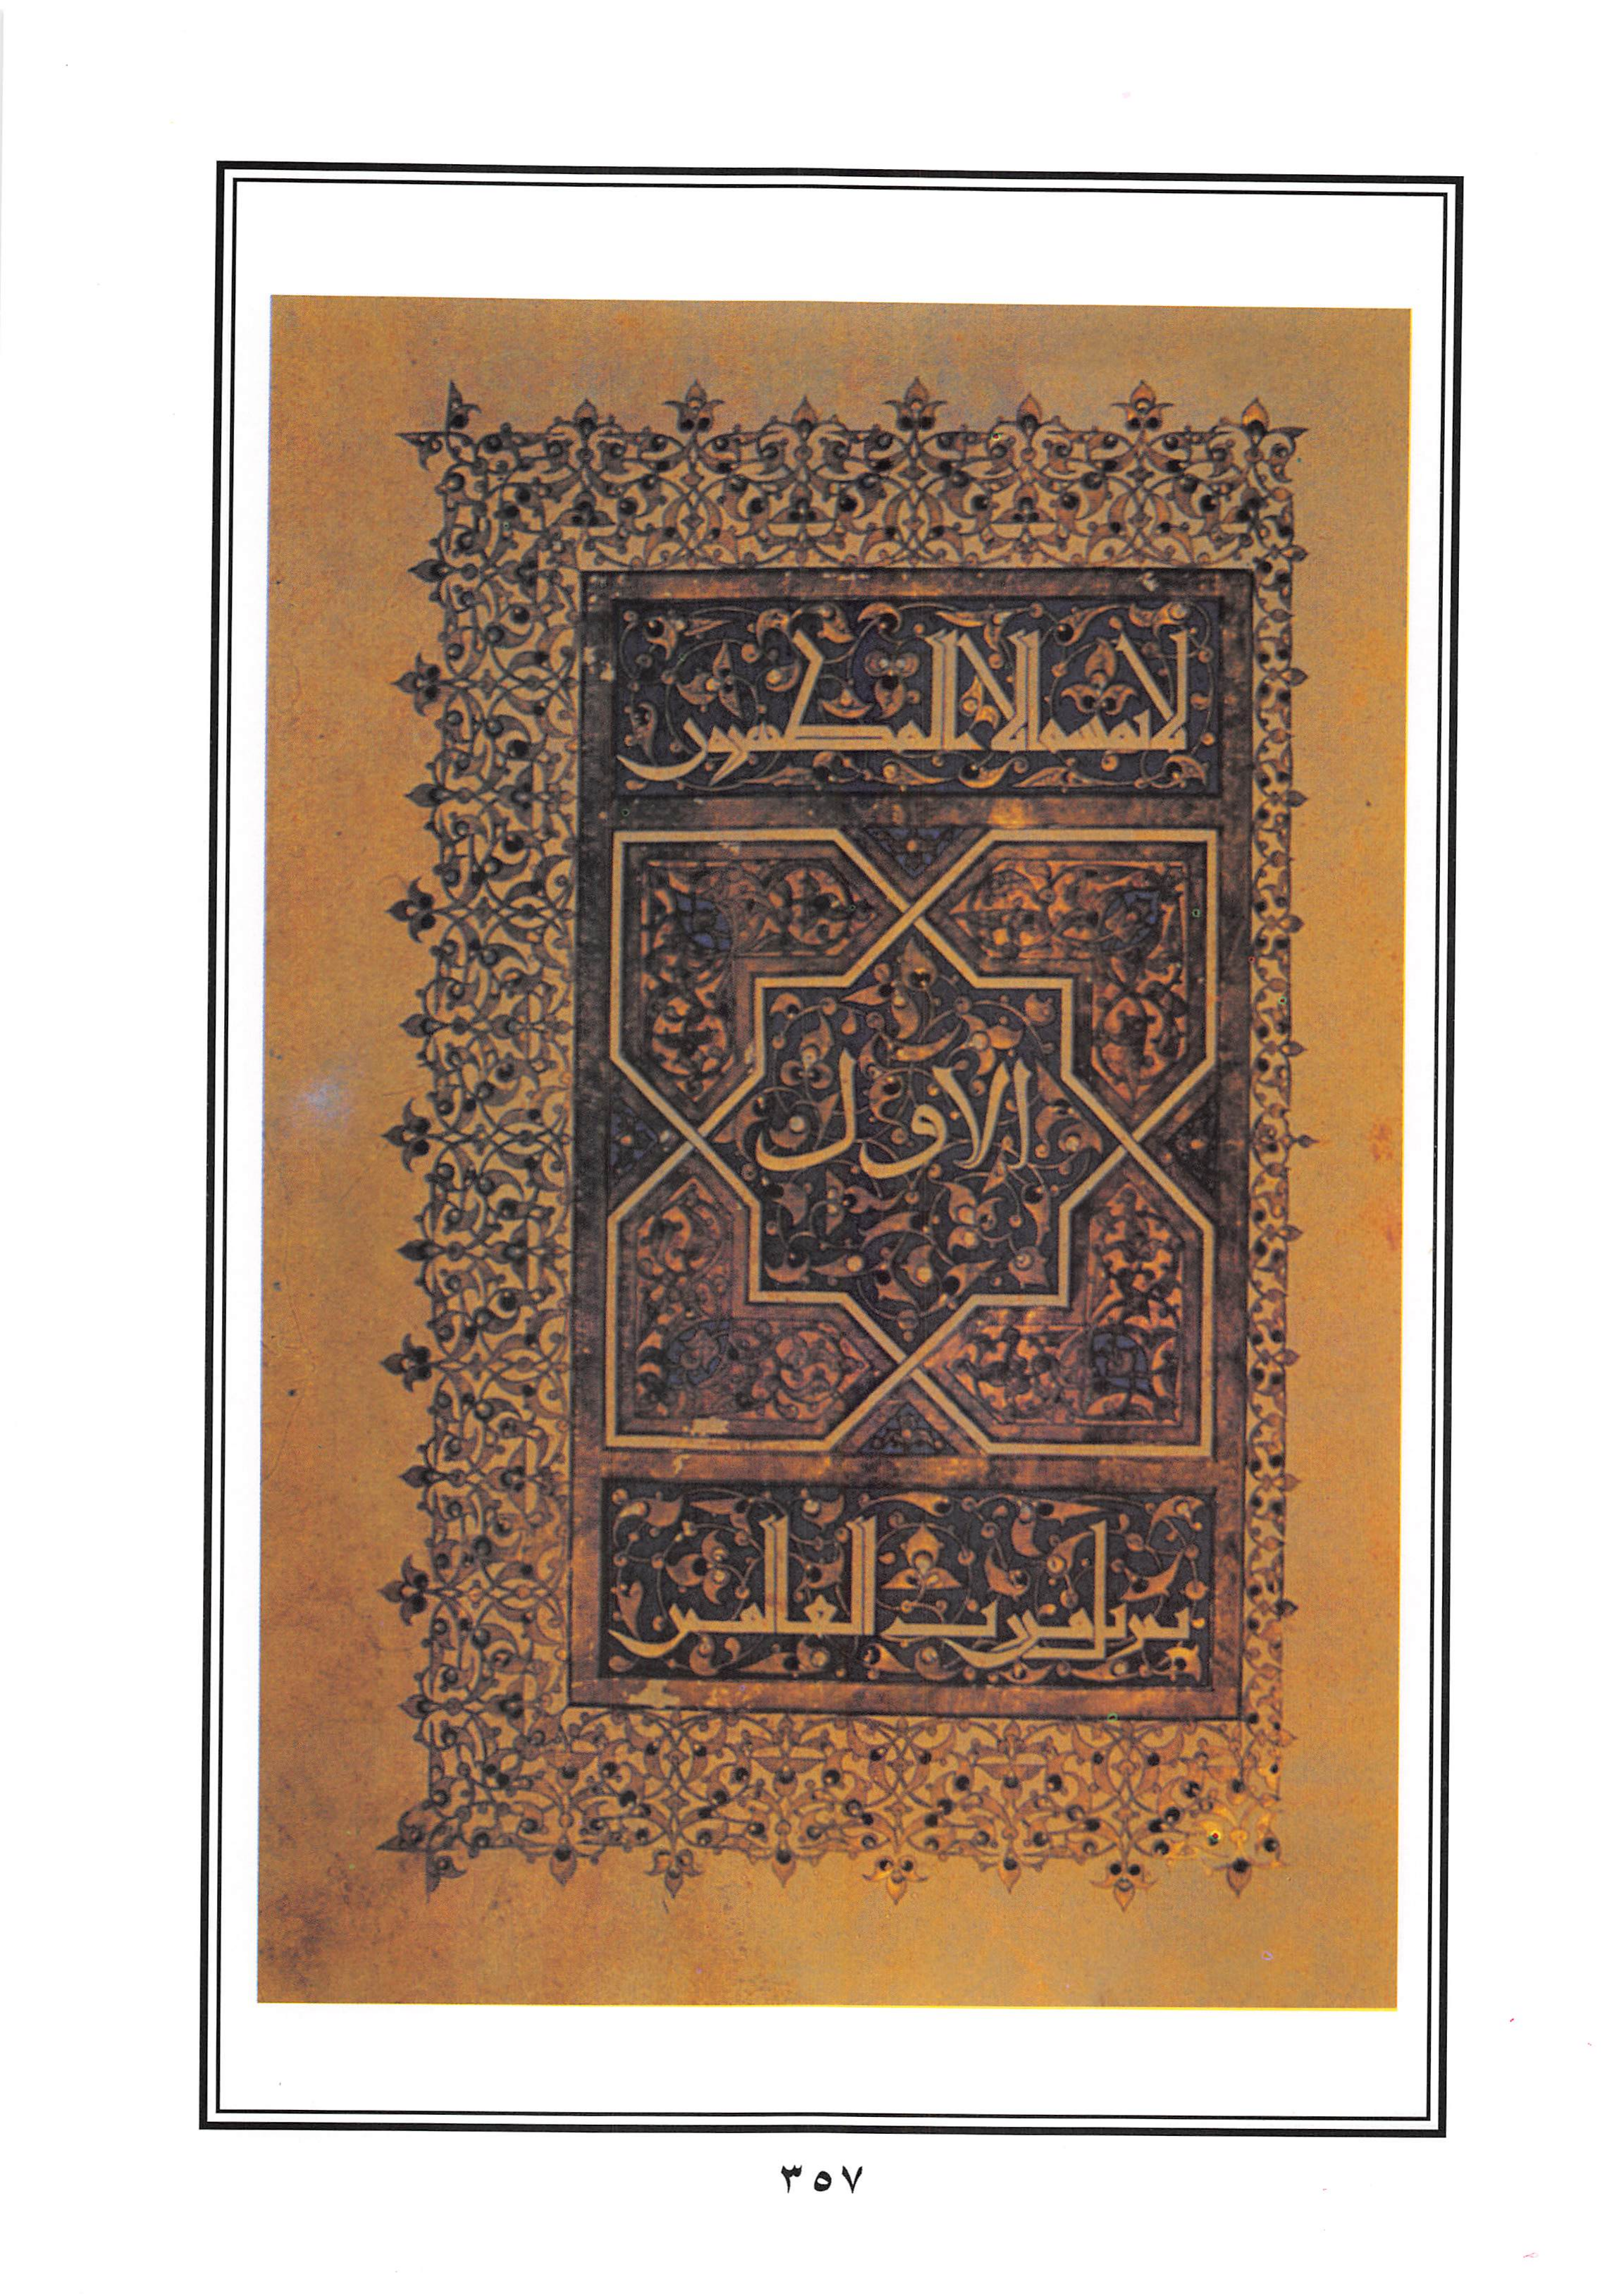 لا يمسه الا المطهرون
الاول
تنزيل من رب العالمين
٣٥٧